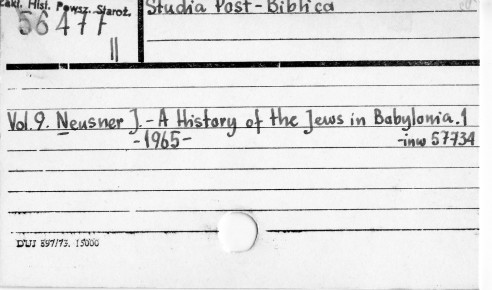 Zakł. Hist. Powsz. Staroż.
Studia Post-Biblica
56477
II
Vol. 9. Neusner J. - A History of the Jews in Babylonia. 1
- 1965 -
-inw 57734
DUJ 897/73. 15000